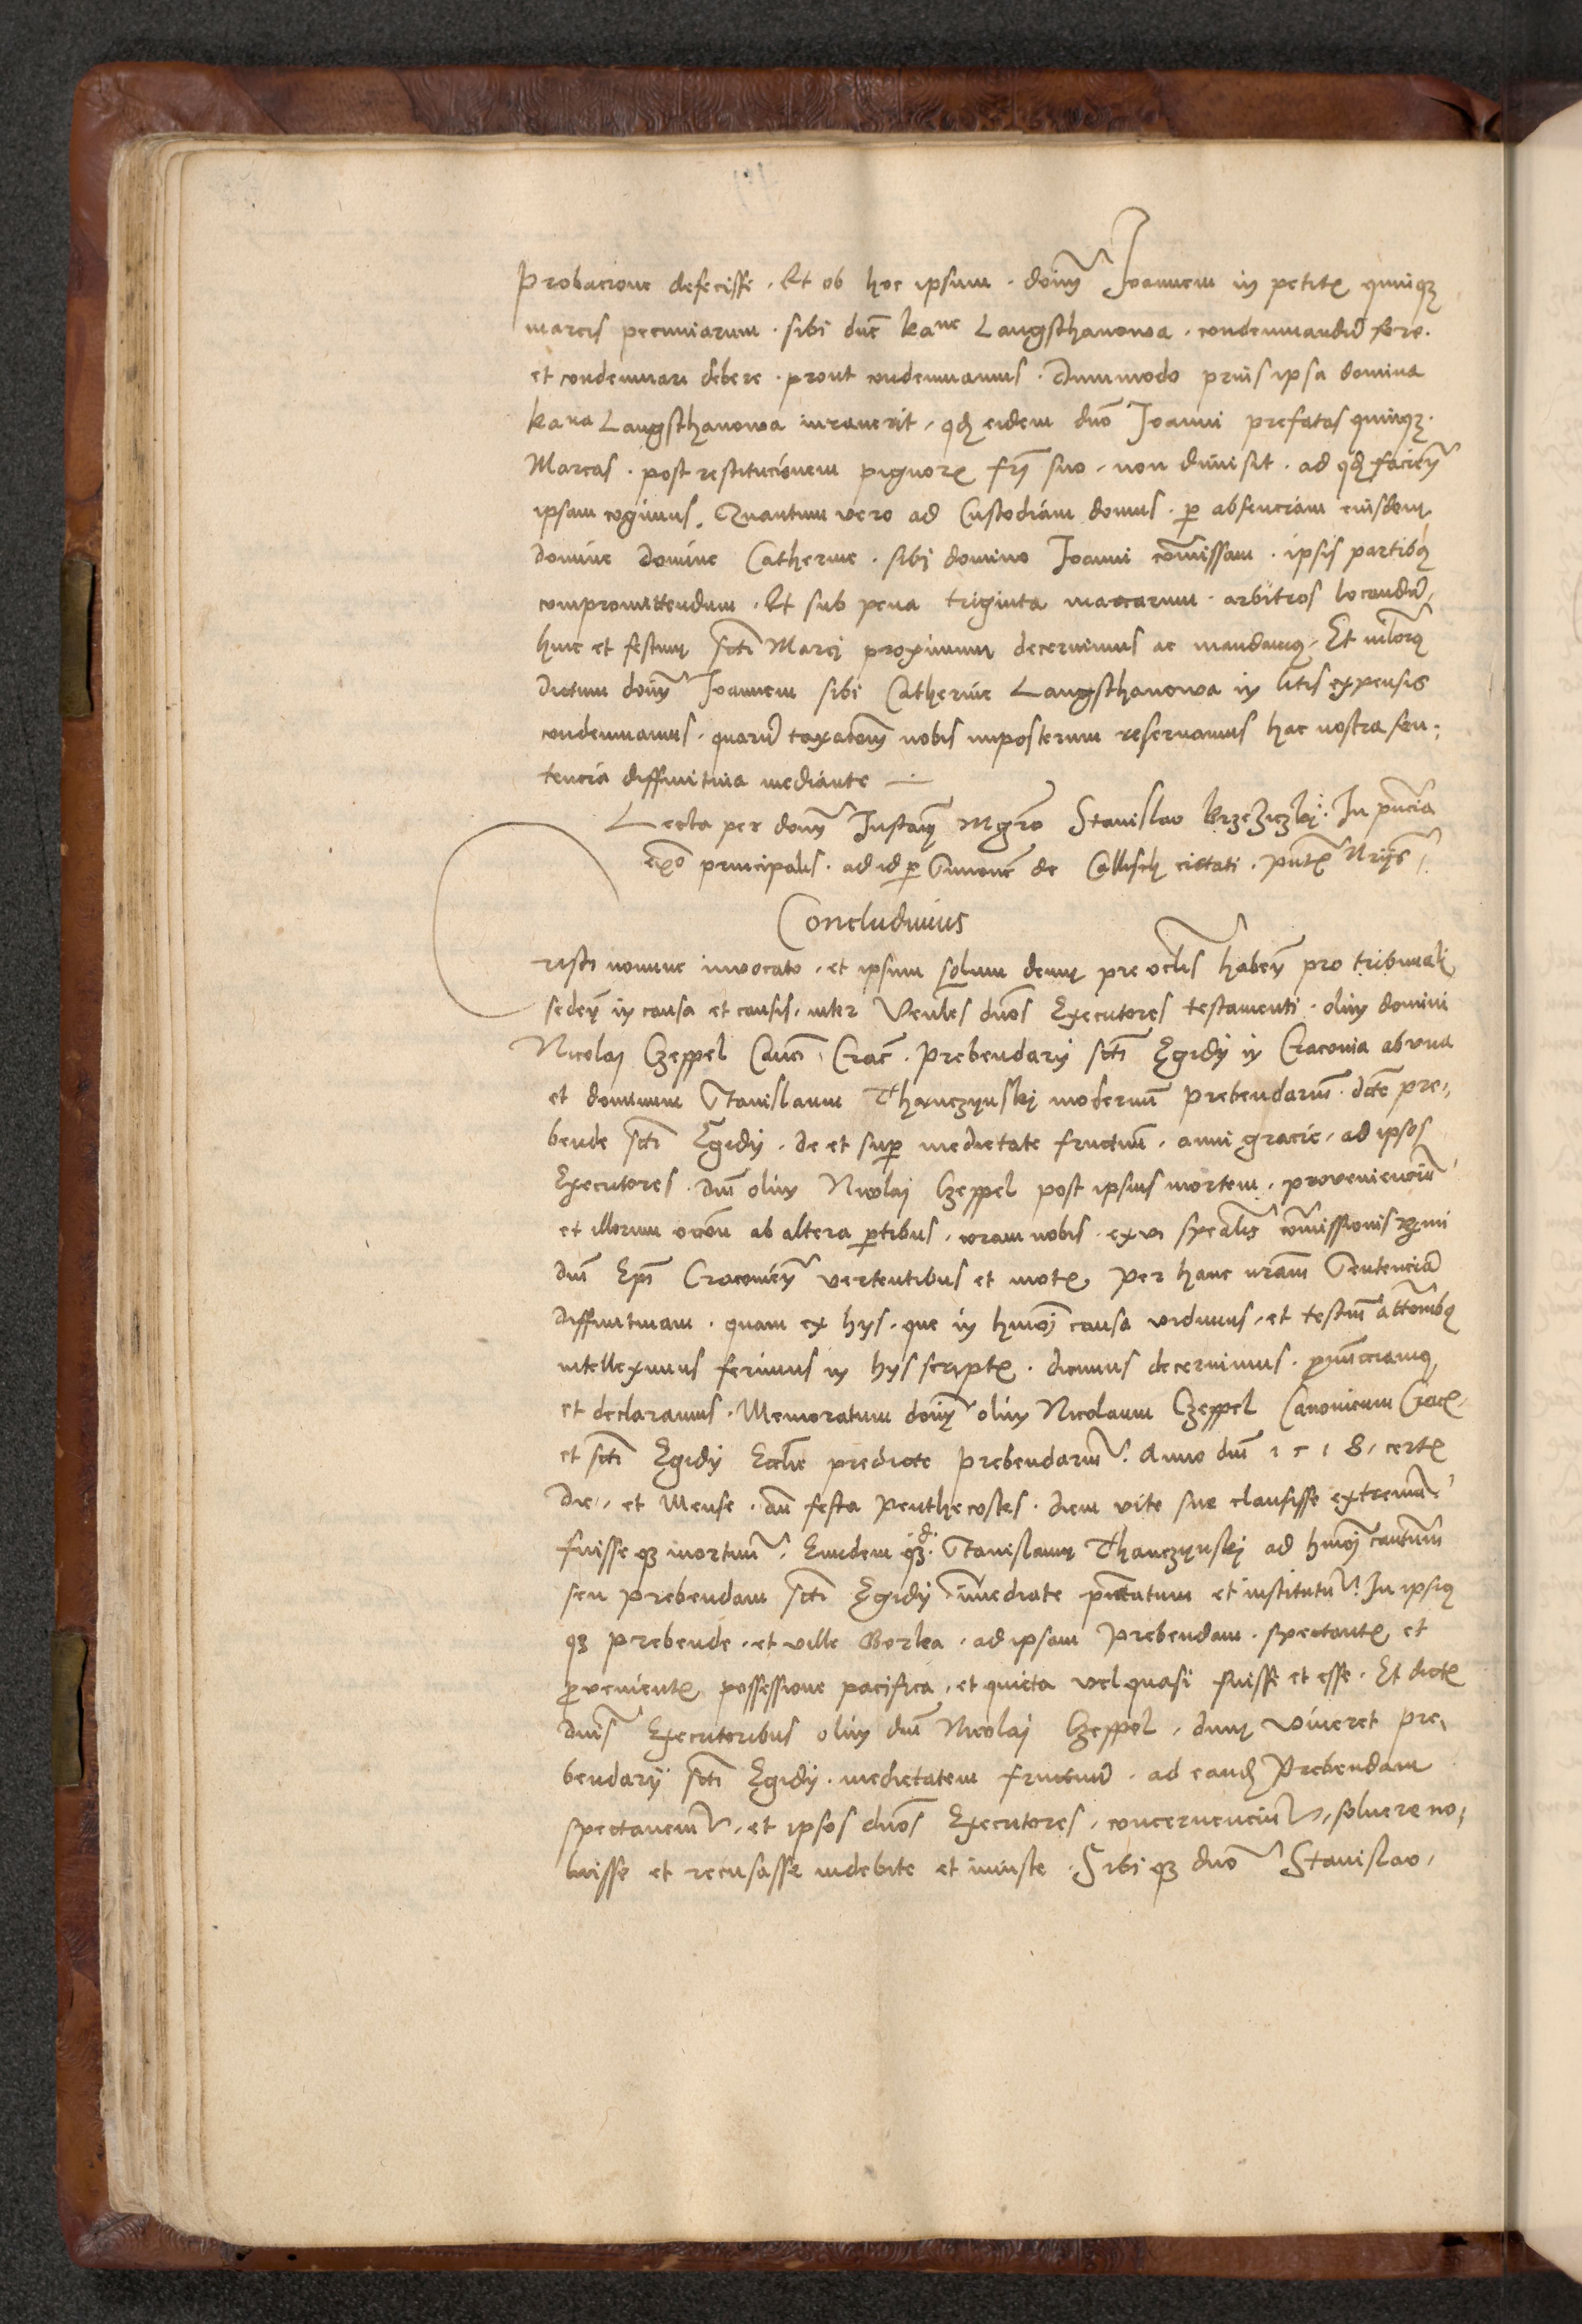 Probacione defecisse . Et ob hoc ipsum . dominum Joannem in petitis quinque
marcis pecuniarum . sibi dne kane Langsthanowa . condemnandum fore .
et condemnari debere . prout condemnamus . Dummodo prius ipsa domina
kana Langsthanowa iuraverit , quod eidem dno Joanni prefatas quinque
Marcas . post restitucionem pignoris fri suo , non dimisit . ad quod faciendum
ipsam cogimus . Quantum vero ad Custodiam domus . per absenciam eiusdem
domine domine Catherine . sibi domino Joanni commissam . ipsis partibus
compromittendum . Et sub pena triginta marcarum . arbitros locandum ,
hinc et festum scti Marci proximum decernimus ac mandamus , Et
dictum dominum Joannem sibi Catherine Langsthanowa in litis expensis
condemnamus . quarum taxacionem nobis imposterum reservamus hac nostra sen :
tencia diffinitiva mediante —
Lecta per dominum Instantem Mgro Stanislao In pncia
principalis . ad id per Simonem de Callisch citati .
Concludimus
Cristi nomine invocato , et ipsum solum deum pre oclis habentes pro tribunali
sedentes in causa et causis , inter Venles dnos Executores testamenti . olim domini
Nicolai Czeppel Canci Crac . Prebendarii scti Egidy in Cracovia ab una
et dominum Stanislaum Thanczynsky modernum Prebendarium . dicte pre ,
bende scti Egidy , de et super medietate fructuum , anni gracie , ad ipsos
Executores . dni olim Nicolai Czeppel post ipsius mortem , proveniencium
et illorum occone ab altera partibus , coram nobis . ex vi specialis commissionis Rmi
dni Epi Cracoviensis vertentibus et motis , Per hanc nram Sentenciam
diffinitivam . quam ex hys , que in humoi causa vidimus , et testium attestacionibus
intelleximus ferimus in hys scriptis . dicimus decernimus . pronunciamus
et declaramus . Memoratum dominum olim Nicolaum Czeppel Canonicum Crac
et scti Egidy Ecclie predicte Prebendarium . Anno dni 1518 , certis
die , et Mense . festa Penthecostes . diem vite sue clausisse extremum
fuisse que mortuum . Eundem que d . Stanislaum Thanczynsky ad humoi
seu Prebendam scti Egidy immediate pntatum et institutum In ipsius
que prebende , et ville Gorka . ad ipsam Prebendam . spectantis et
provenientis possessione pacifica , et quieta vel quasi fuisse et esse . Et dictis
dnis Executoribus olim dni Nicolai Czeppel , dum viveret pre ,
bendarii scti Egidy . medietatem fructuum . ad eandem Prebendam
spectancium , et ipsos dnos Executores , concernencium , solvere no :
luisse et recusasse indebite et iniuste . Sibi que dno Stanislao ,